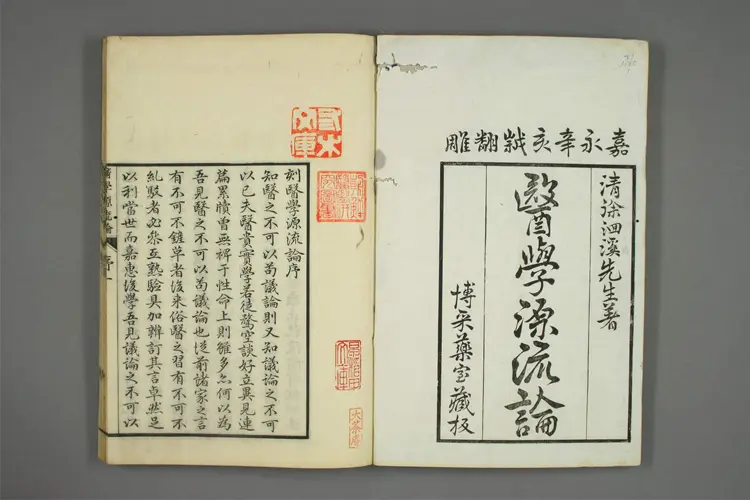 嘉永辛亥栞翻雕
清徐洄溪先生著
醫學源流論
博采藥室藏板
刻醫學源流論序
知醫之不可以苟議論則又知議論之不可
以已夫醫貴實學若徒騖空談好立異見連
篇累牘曾無裨于性命上則雖多亦何以為
吾見醫之不可以苟議論也從前諸家之言
有不可不鏟草者後來俗醫之習有不可不
糺駁者必參互熟驗具加辨訂其言卓然足
以利當世而嘉惠後學吾見議論之不可以
醫學源流論 序 一
大茶庵